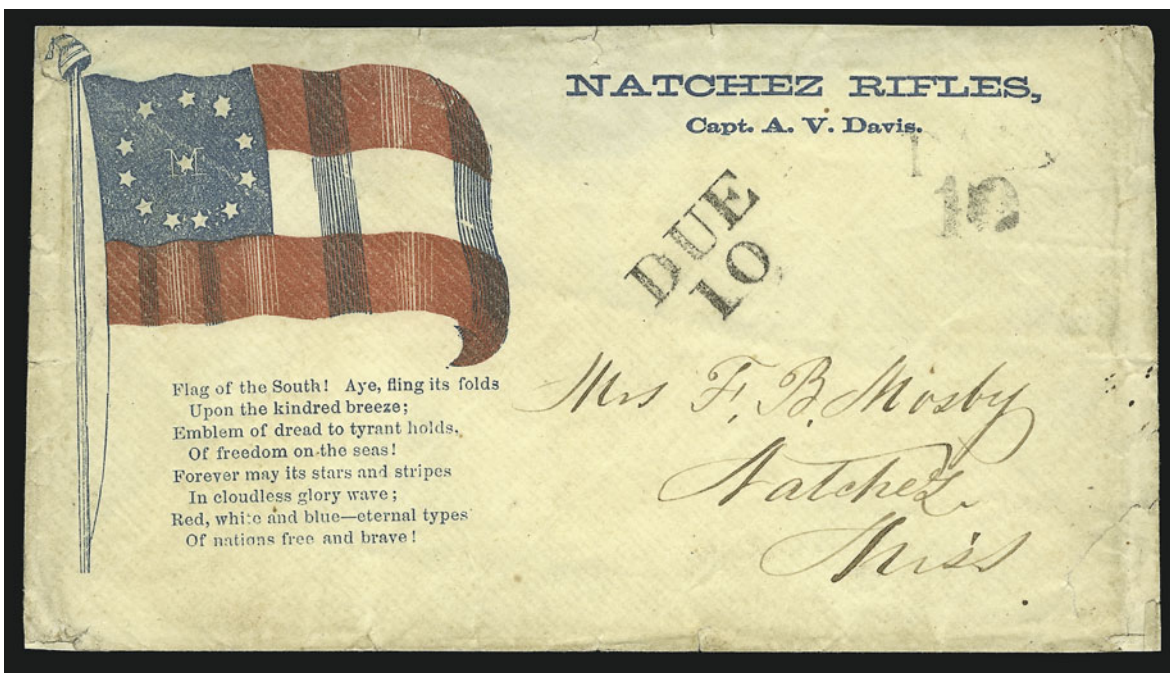 NATCHEZ RIFLES,
Capt. A. V. Davis.
M
DUE
10
10
Flag of the South! Aye, fling its folds
Upon the kindred breeze;
Emblem of dread to tyrant holds,
Of freedom on the seas!
Forever may its stars and stripes
In cloudless glory wave;
Red, white and blue—eternal types
Of nations free and brave!
Mrs F. B. Mosby
Natchez
Miss